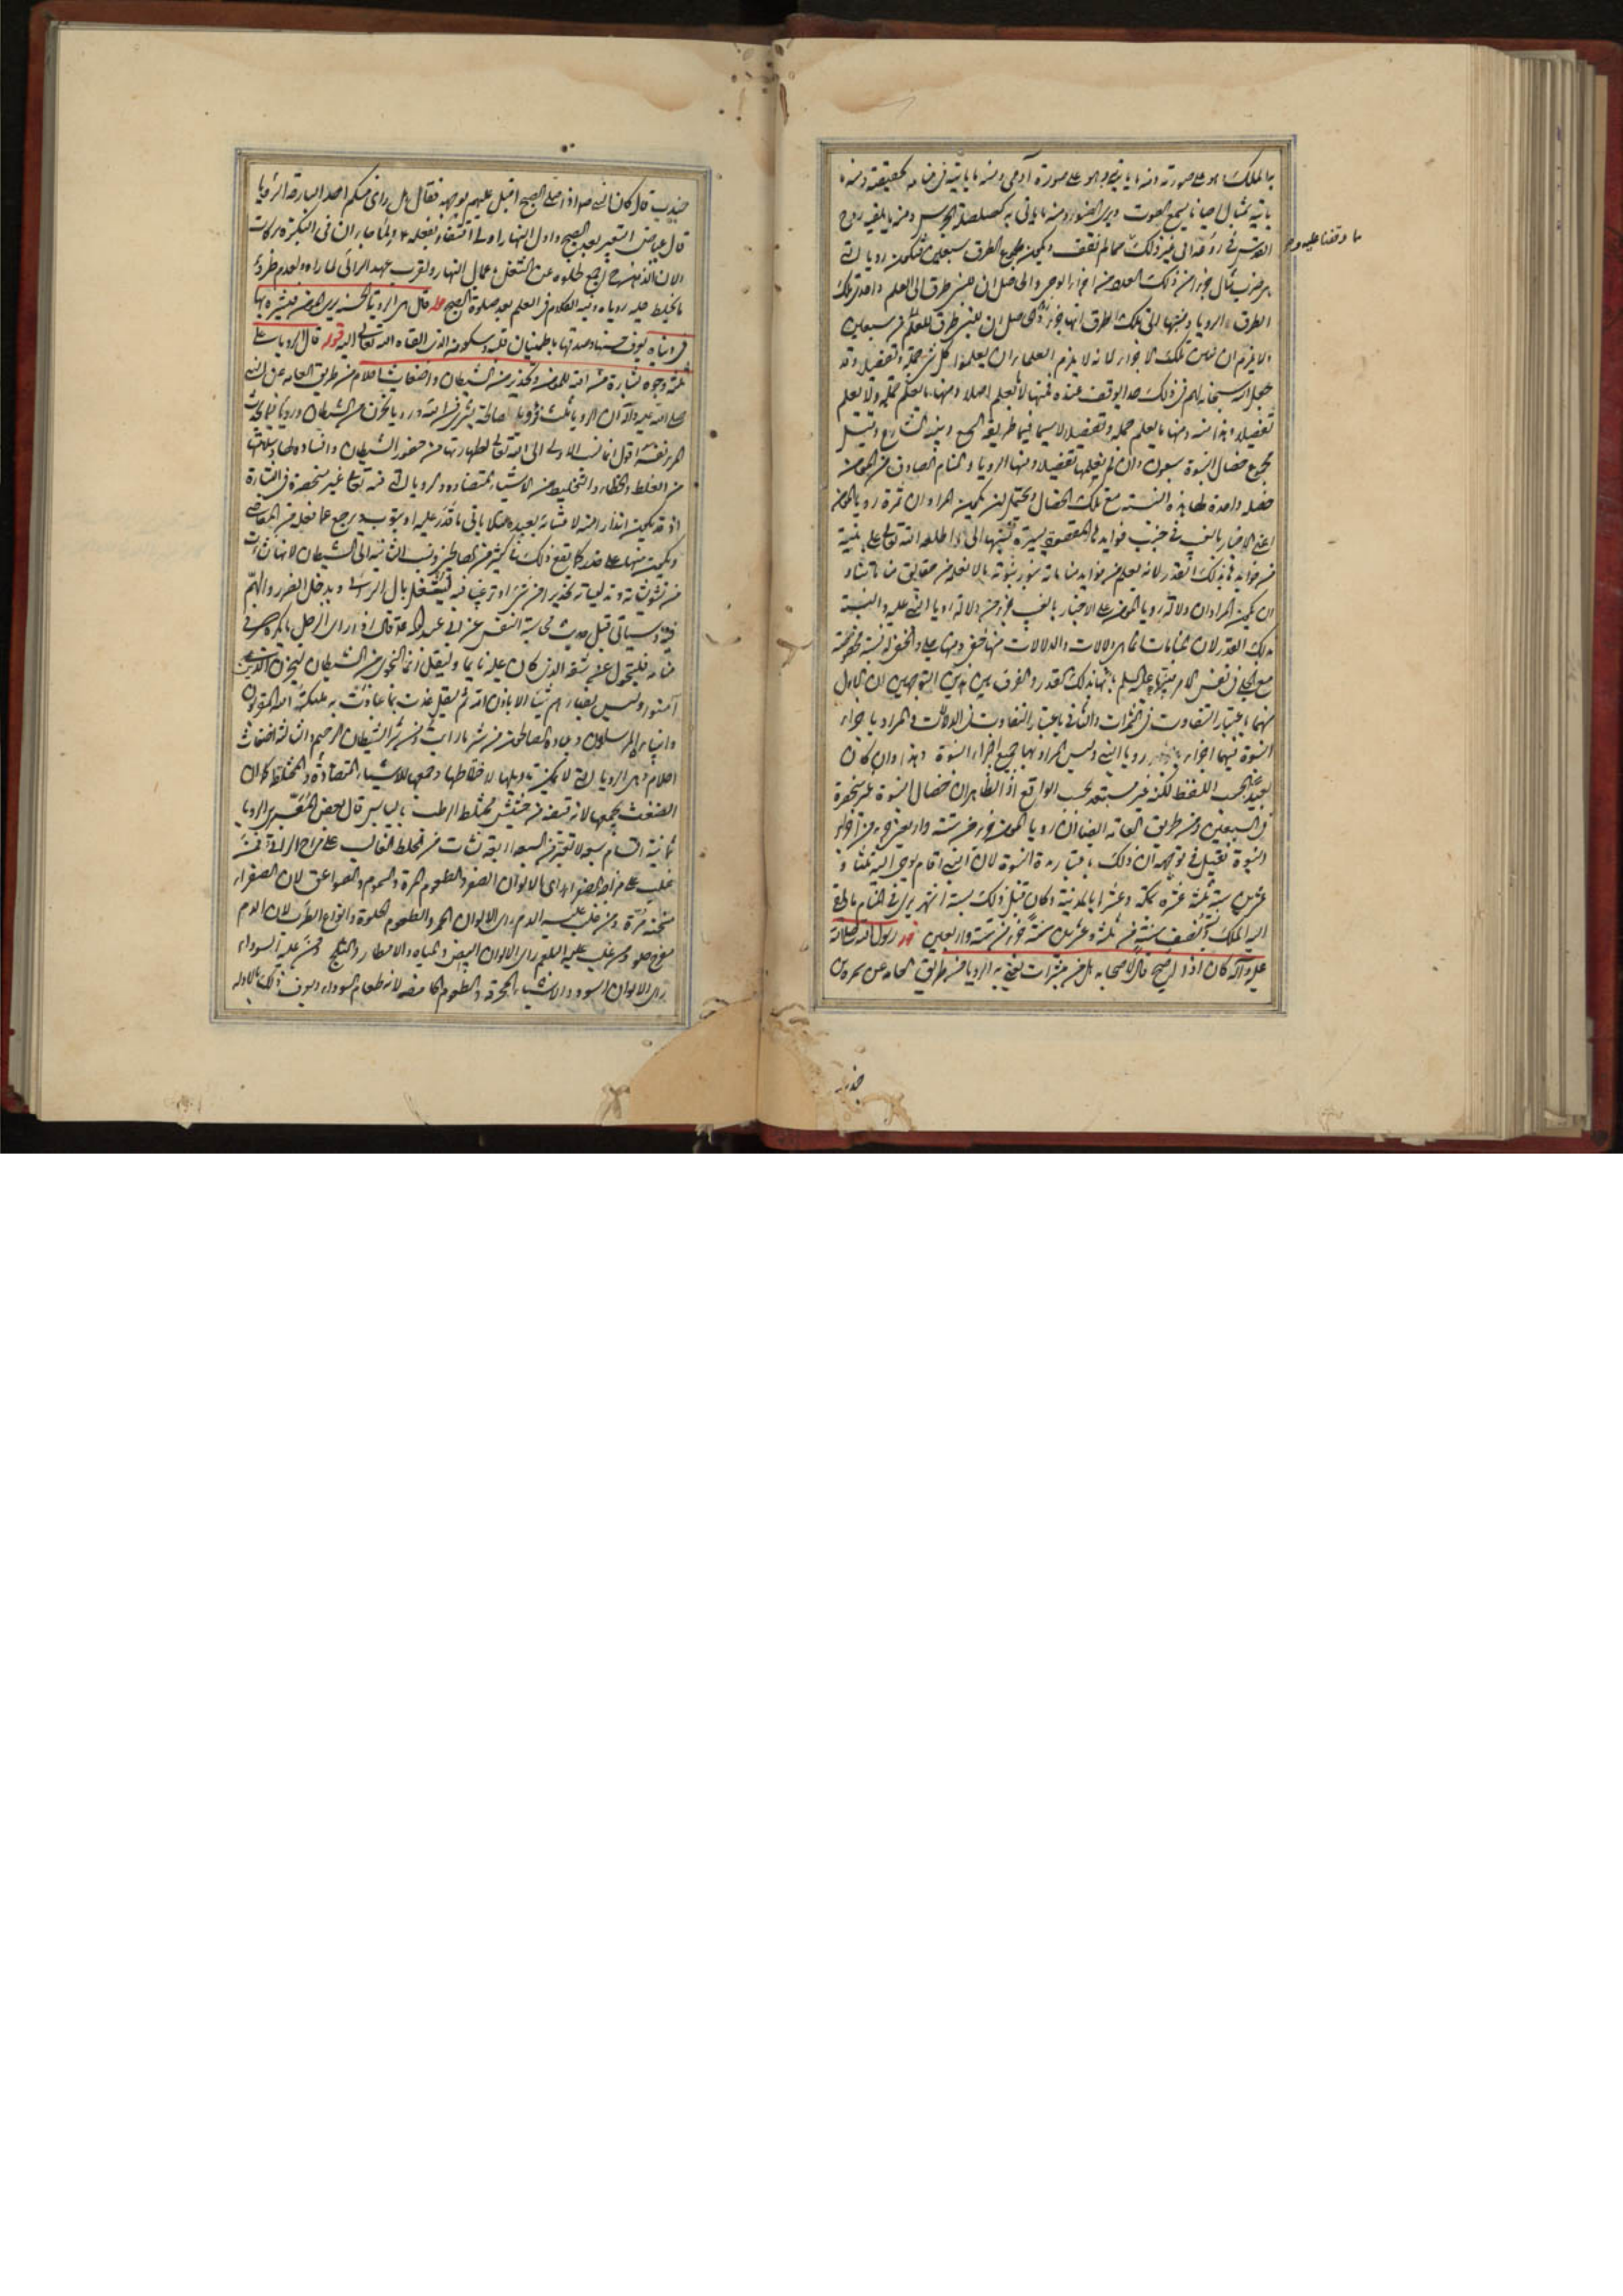 به الملك ما هو على صورته ومنه ما ياتيه وهو على صورة آدمي ومنه ما ياتيه في منامه كحقيقته ومنه ما
ياتيه بمثال احيانا يسمع الصوت ويرى الضوء ومنه ما ياتي به كصلصلة الجرس ومنه ما يلقيه روح
القدس في روعه الى غير ذلك مما لم نقف ويكون مجموع الطرق سبعين فتكون رويا التي
ما وقفنا عليه وما
هي ضرب مثال جزءا من ذلك العدد من اجزاء الوحي والحاصل ان للنبي طرق الى العلم واحدى تلك
الطرق الرويا ونسبتها الى تلك الطرق انها جزء من سبعين
ولا يلزم ان نبين تلك الاجزاء لانه لا يلزم العلماء ان يعلموا كل شيء جملة وتفصيلا وقد
جعل الله سبحانه لهم في ذلك حدا يوقف عنده فمنها لا يعلم اصلا ومنها ما يعلم جملة ولا يعلم
تفصيلا وهذا منه ومنها ما يعلم جملة وتفصيلا لا سيما فيما طريقه السمع وبينه الشارع وقيل
مجموع خصال النبوة سبعون وان لم نعلمها تفصيلا ومنها الرويا والمنام الصادق من المومن
خصلة واحدة لها هذه النسبة مع تلك الخصال ويحتمل ان يكون المراد ان ثمرة رويا المومن
اعني الاخبار بالغيب في جنب فوايدها المقصودة يسيرة نسبتها الى ما اطلعه الله تعالى على نبيه
من فوايده بذلك القدر لانه يعلم من فوايد مناماته بنور نبوته ما لا نعلمه من حقايق مناماتنا و
ان يكون المراد ان دلالة رويا المومن على الاخبار بالغيب جزء من دلالة رويا النبي عليه والنسبة
بذلك القدر لان المنامات انما هي دلالات والدلالات منها خفي ومنها جلي والخفي له نسبة مخصوصة
مع الجلي في نفس الامر بينها عليه السلم بانها بذلك القدر والفرق بين هذين التوجيهين ان الاول
منهما باعتبار التفاوت في الثمرات والثاني باعتبار التفاوت في الدلالات فالمراد باجزاء
النبوة فيهما اجزاء رويا النبي وليس المراد بها جميع اجزاء النبوة وهذا وان كان
بعيدا بحسب اللفظ لكنه غير مستبعد بحسب الواقع اذ الظاهر ان خصال النبوة غير منحصرة
في السبعين ومن طريق العامة ايضا ان رويا المومن جزء من ستة واربعين جزء من اجزاء
النبوة فقيل في توجيهه ان ذلك باعتبار مدة النبوة لان النبي اقام يوحى اليه ثلثا و
عشرين سنة ثلثة عشرة بمكة وعشرا بالمدينة وكان قبل ذلك بستة اشهر يرى في المنام ما يلقي
اليه الملك ونسبة نصف سنة من ثلثة وعشرين سنة جزء من ستة واربعين قوله رسول الله صلى الله
عليه وآله كان اذا اصبح قال لاصحابه هل من مبشرات يعني به الرويا من طريق العامة عن سمرة بن
جندب
جندب قال كان النبي ص اذا صلى الصبح اقبل عليهم بوجهه فقال هل راى منكم احد البارحة الرويا
قال عياض التعبير بعد الصبح واول النهار اولى اقتفاء بفعله ولما جاء ان في البكرة بركات
ولان الذهن حينئذ اجمع لخلوه عن الشغل باعمال النهار ولقرب عهد الرائي لما راه ولعدم طروء
ما يخلط عليه روياه وفيه الكلام في العلم بعد صلوة الصبح قوله قال هي الرويا الحسنة يرى المومن فيبشر بها
في دنياه يعرف حسنها وصدقها باطمينان قلبه وسكونه الذي القاه الله تعالى اليه قوله قال الرويا على
ثلثة وجوه بشارة من الله للمومن وتحذير من الشيطان واضغاث احلام من طريق العامة عن النبي
صلى الله عليه وآله ان الرويا ثلث فرويا صالحة بشرى من الله ورويا تحزن من الشيطان ورويا مما يحدث
المرء نفسه اقول انما نسب الاولى الى الله تعالى لطهارتها من حضور الشيطان وافساده لها وسلامتها
من الغلط والخطاء والتخليط من الاشياء المتضادة والرويا التي منه تعالى غير منحصرة في البشارة
اذ قد يكون انذارا منه لاعتنائه بعبده لئلا ياتي ما قدر عليه او يتوب ويرجع عما فعله من المعاصي
ويكون منها على حذر كما يقع ذلك كثيرا من الصالحين ونسب الثانية الى الشيطان لانها نشات
من تشويشاته وتدليساته تحذيرا من شيء او ترغيبا فيه ليشتغل بال الرائي ويدخل الضرر والهم
فيه وسياتي قبل حديث محاسبة النفس عن ابي عبد الله ع قال اذا راى الرجل ما يكره في
منامه فليتحول عن شقه الذي كان عليه نايما وليقل انما النجوى من الشيطان ليحزن الذين
آمنوا وليس بضارهم شيئا الا باذن الله ثم ليقل عذت بما عاذت به ملئكة الله المقربون
وانبياء الله المرسلون وعباده الصالحون من شر ما رايت ومن شر الشيطان الرجيم والثالثة اضغاث
احلام وهي الرويا التي لا يمكن تاويلها لاختلاطها وجمعها للاشياء المتضادة والمختلطة كما ان
الضغث يجمعها لانه قبضة من حشيش مختلط الرطب باليابس قال بعض المعبرين الرويا
ثمانية اقسام سبعة لا تعبر من السبعة اربعة نشات من الخلط الغالب على مزاج الرائي فمن
غلب على مزاجه الصفراء راى الالوان الصفر والطعوم المرة والسموم والصواعق لان الصفراء
مسخنة مرة ومن غلب عليه الدم راى الالوان الحمر والطعوم الحلوة وانواع الطرب لان الدم
مفرح حلو ومن غلب عليه البلغم راى الالوان البيض والمياه والامطار والثلج ومن غلب عليه السوداء
راى الالوان السود والاشياء المحرقة والطعوم الحامضة لانه طعام السوداء ويعرف ذلك بالادلة